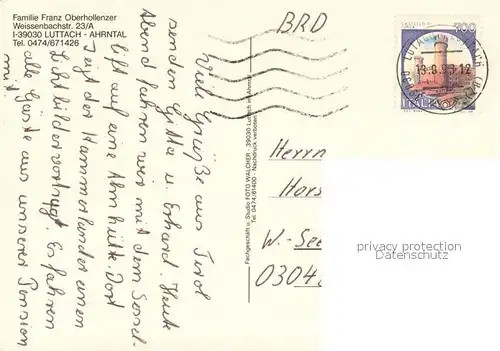 Familie Franz Oberhollenzer
Weissenbachstr. 23/A
I-39030 LUTTACH - AHRNTAL
Tel. 0474/671426
BRD
700
13.8.93.12
ITALIA
Viele Grüße aus Tirol
senden Gitta u. Erhard. Heute
Abend fahren wir mit dem Sessel-
lift auf eine Almhütte. Dort
zeigt der Hammerlander einen
Lichtbildervortrag. Es fahren
alle Gäste aus unserer Pension
mit.
Fachgeschäft u. Studio FOTO WALCHER - 39030 Luttach im Ahrntal
Tel. 0474/61400 - Nachdruck verboten
Herrn
Hors
W.-See
0304
privacy protection
Datenschutz